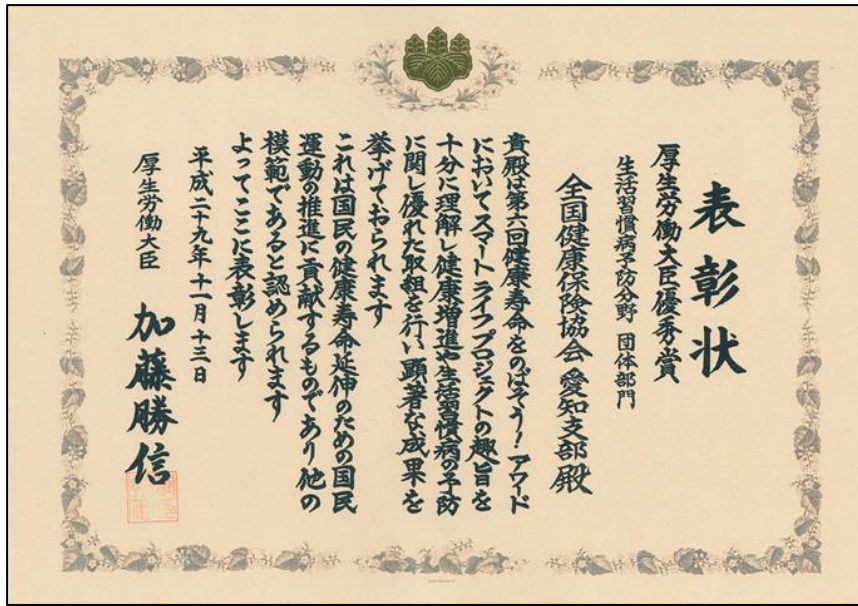 表彰状
厚生労働大臣優秀賞
生活習慣病予防分野 団体部門
全国健康保険協会 愛知支部殿
貴殿は第六回健康寿命をのばそう！アワード
においてスマートライフプロジェクトの趣旨を
十分に理解し健康増進や生活習慣病の予防
に関し優れた取組を行い顕著な成果を
挙げておられます
これは国民の健康寿命延伸のための国民
運動の推進に貢献するものであり他の
模範であると認められます
よってここに表彰します
平成二十九年十一月十三日
厚生労働大臣 加藤勝信